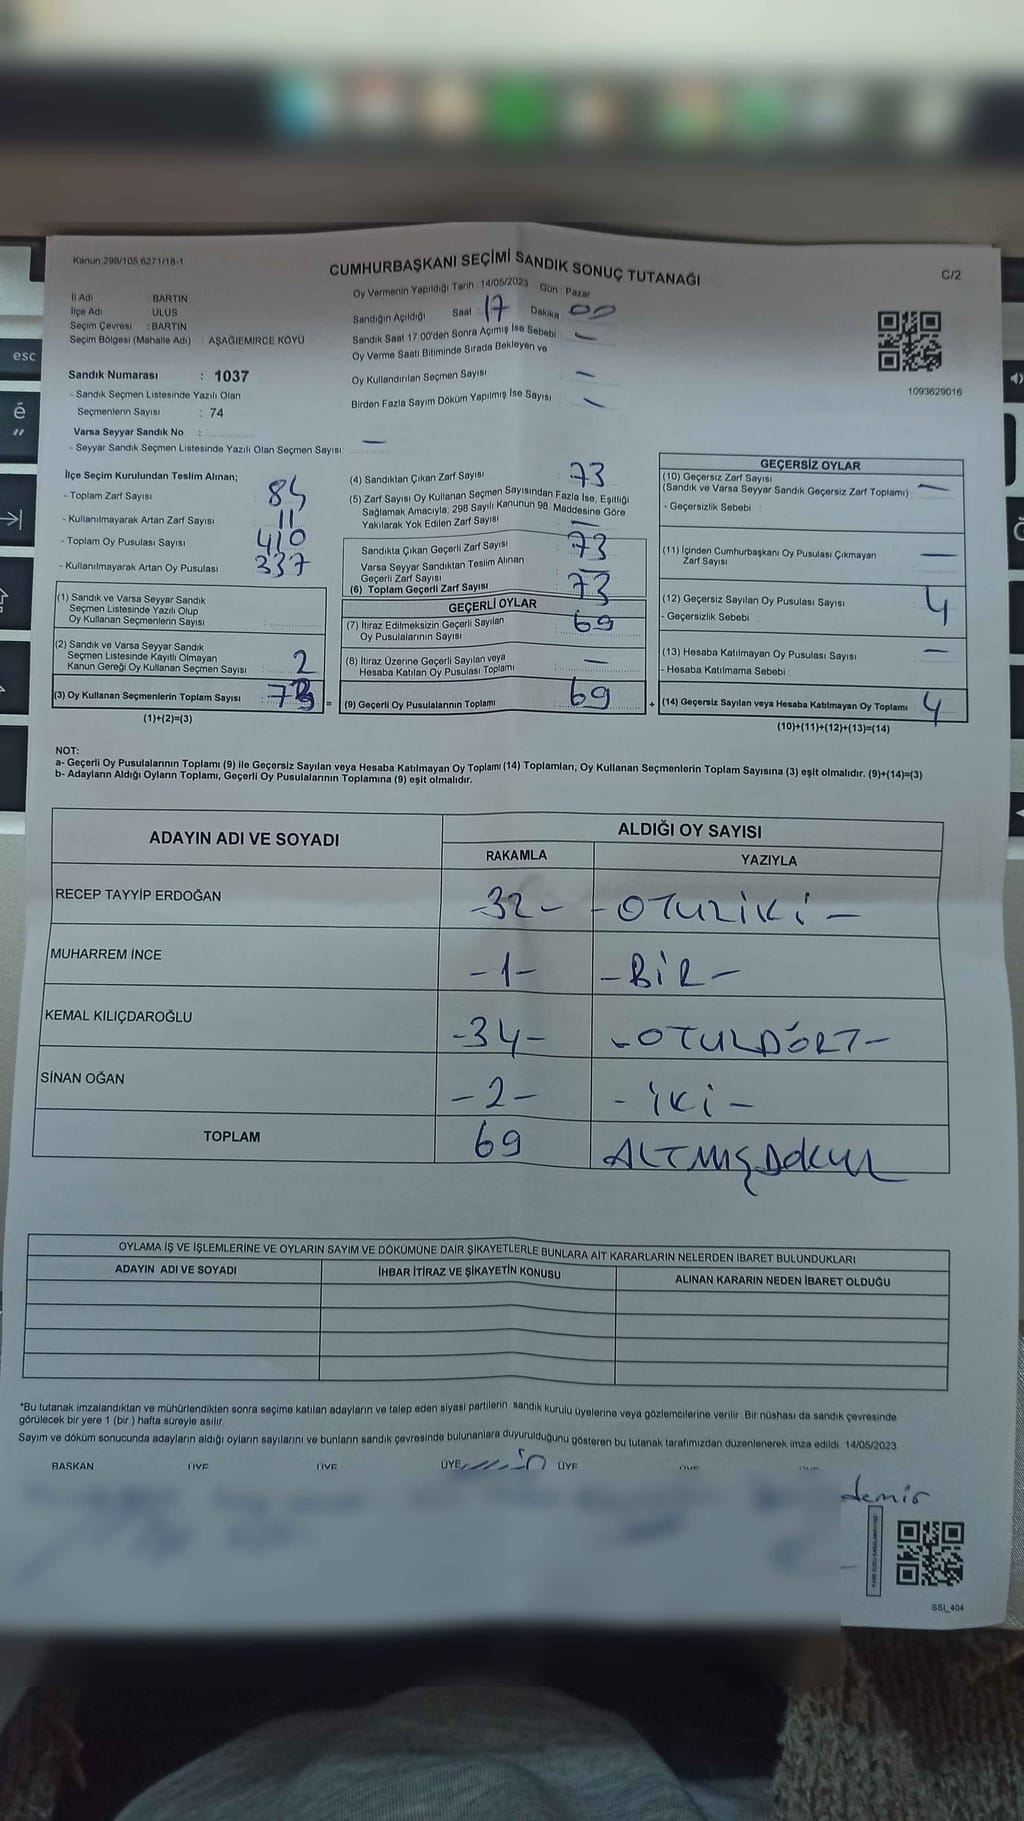 Kanun.298/105,6271/18-1
CUMHURBAŞKANI SEÇİMİ SANDIK SONUÇ TUTANAĞI
C/2
İl Adı : BARTIN
İlçe Adı : ULUS
Seçim Çevresi : BARTIN
Seçim Bölgesi (Mahalle Adı) : AŞAĞIEMİRCE KÖYÜ
Sandık Numarası : 1037
- Sandık Seçmen Listesinde Yazılı Olan
Seçmenlerin Sayısı : 74
Varsa Seyyar Sandık No :
- Seyyar Sandık Seçmen Listesinde Yazılı Olan Seçmen Sayısı: —
Oy Vermenin Yapıldığı Tarih : 14/05/2023 Gün : Pazar
Sandığın Açıldığı Saat : 17 Dakika : 00
Sandık Saat 17:00'den Sonra Açımış İse Sebebi : —
Oy Verme Saati Bitiminde Sırada Bekleyen ve
Oy Kullandırılan Seçmen Sayısı —
Birden Fazla Sayım Döküm Yapılmış İse Sayısı : —
1093629016
İlçe Seçim Kurulundan Teslim Alınan;
- Toplam Zarf Sayısı : 84
- Kullanılmayarak Artan Zarf Sayısı : 11
- Toplam Oy Pusulası Sayısı : 410
- Kullanılmayarak Artan Oy Pusulası : 337
(1) Sandık ve Varsa Seyyar Sandık
Seçmen Listesinde Yazılı Olup
Oy Kullanan Seçmenlerin Sayısı :
(2) Sandık ve Varsa Seyyar Sandık
Seçmen Listesinde Kayıtlı Olmayan
Kanun Gereği Oy Kullanan Seçmen Sayısı : 2
(3) Oy Kullanan Seçmenlerin Toplam Sayısı : 73
(1)+(2)=(3)
=
(4) Sandıktan Çıkan Zarf Sayısı : 73
(5) Zarf Sayısı Oy Kullanan Seçmen Sayısından Fazla İse, Eşitliği
Sağlamak Amacıyla, 298 Sayılı Kanunun 98. Maddesine Göre
Yakılarak Yok Edilen Zarf Sayısı : —
Sandıkta Çıkan Geçerli Zarf Sayısı : 73
Varsa Seyyar Sandıktan Teslim Alınan
Geçerli Zarf Sayısı : —
(6) Toplam Geçerli Zarf Sayısı : 73
GEÇERLİ OYLAR
(7) İtiraz Edilmeksizin Geçerli Sayılan
Oy Pusulalarının Sayısı : 69
(8) İtiraz Üzerine Geçerli Sayılan veya
Hesaba Katılan Oy Pusulası Toplamı : —
(9) Geçerli Oy Pusulalarının Toplamı : 69
+
GEÇERSİZ OYLAR
(10) Geçersiz Zarf Sayısı
(Sandık ve Varsa Seyyar Sandık Geçersiz Zarf Toplamı) : —
- Geçersizlik Sebebi :
(11) İçinden Cumhurbaşkanı Oy Pusulası Çıkmayan
Zarf Sayısı : —
(12) Geçersiz Sayılan Oy Pusulası Sayısı : 4
- Geçersizlik Sebebi :
(13) Hesaba Katılmayan Oy Pusulası Sayısı : —
- Hesaba Katılmama Sebebi :
(14) Geçersiz Sayılan veya Hesaba Katılmayan Oy Toplamı : 4
(10)+(11)+(12)+(13)=(14)
NOT:
a- Geçerli Oy Pusulalarının Toplamı (9) ile Geçersiz Sayılan veya Hesaba Katılmayan Oy Toplamı (14) Toplamları, Oy Kullanan Seçmenlerin Toplam Sayısına (3) eşit olmalıdır. (9)+(14)=(3)
b- Adayların Aldığı Oyların Toplamı, Geçerli Oy Pusulalarının Toplamına (9) eşit olmalıdır.
ADAYIN ADI VE SOYADI ALDIĞI OY SAYISI
RAKAMLA YAZIYLA
RECEP TAYYİP ERDOĞAN -32- -OTUZİKİ-
MUHARREM İNCE -1- -BİR-
KEMAL KILIÇDAROĞLU -34- -OTUZDÖRT-
SİNAN OĞAN -2- -İKİ-
TOPLAM 69 ALTMIŞDOKUZ
OYLAMA İŞ VE İŞLEMLERİNE VE OYLARIN SAYIM VE DÖKÜMÜNE DAİR ŞİKAYETLERLE BUNLARA AİT KARARLARIN NELERDEN İBARET BULUNDUKLARI
ADAYIN ADI VE SOYADI İHBAR İTİRAZ VE ŞİKAYETİN KONUSU ALINAN KARARIN NEDEN İBARET OLDUĞU
*Bu tutanak imzalandıktan ve mühürlendikten sonra seçime katılan adayların ve talep eden siyasi partilerin sandık kurulu üyelerine veya gözlemcilerine verilir. Bir nüshası da sandık çevresinde
görülecek bir yere 1 (bir ) hafta süreyle asılır.
Sayım ve döküm sonucunda adayların aldığı oyların sayılarını ve bunların sandık çevresinde bulunanlara duyurulduğunu gösteren bu tutanak tarafımızdan düzenlenerek imza edildi. 14/05/2023
BAŞKAN ÜYE ÜYE ÜYE ÜYE
demir
SSİ_404
esc
é